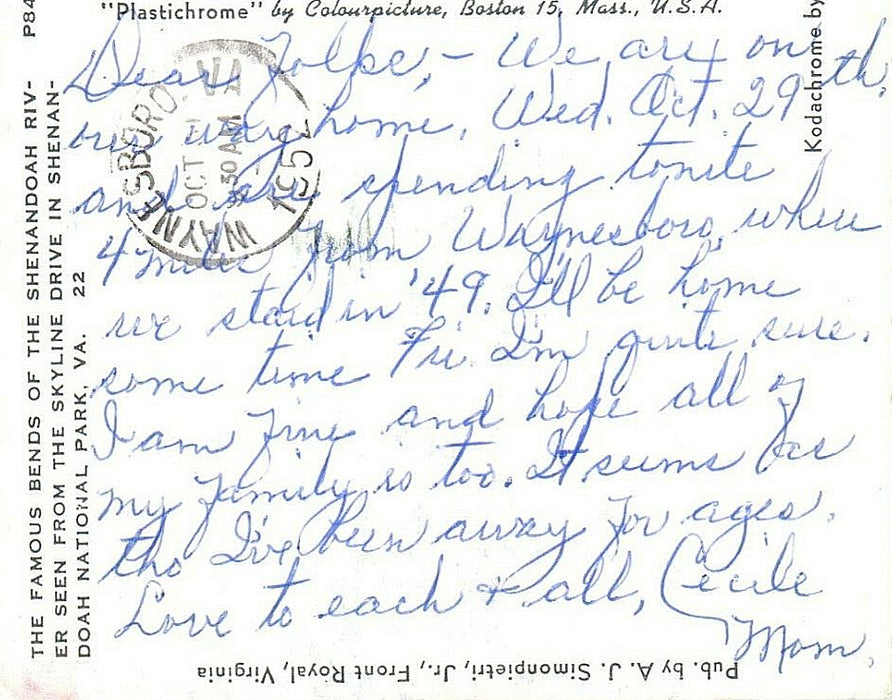 "Plastichrome" by Colourpicture, Boston 15, Mass., U.S.A.
Dear Folks, - We are on
our way home, Wed. Oct. 29th,
and are spending tonite
4 miles from Waynesboro, where
we staid in '49. I'll be home
some time Fri. I'm quite sure.
I am fine and hope all of
my family is too. It seems as
tho I've been away for ages.
Love to each & all, Cecile
Mom.
WAYNESBORO. VA
OCT
30 AM
1952
THE FAMOUS BENDS OF THE SHENANDOAH RIV-
ER SEEN FROM THE SKYLINE DRIVE IN SHENAN-
DOAH NATIONAL PARK, VA. 22
P84
Kodachrome by
Pub. by A. J. Simonpietri, Jr., Front Royal, Virginia